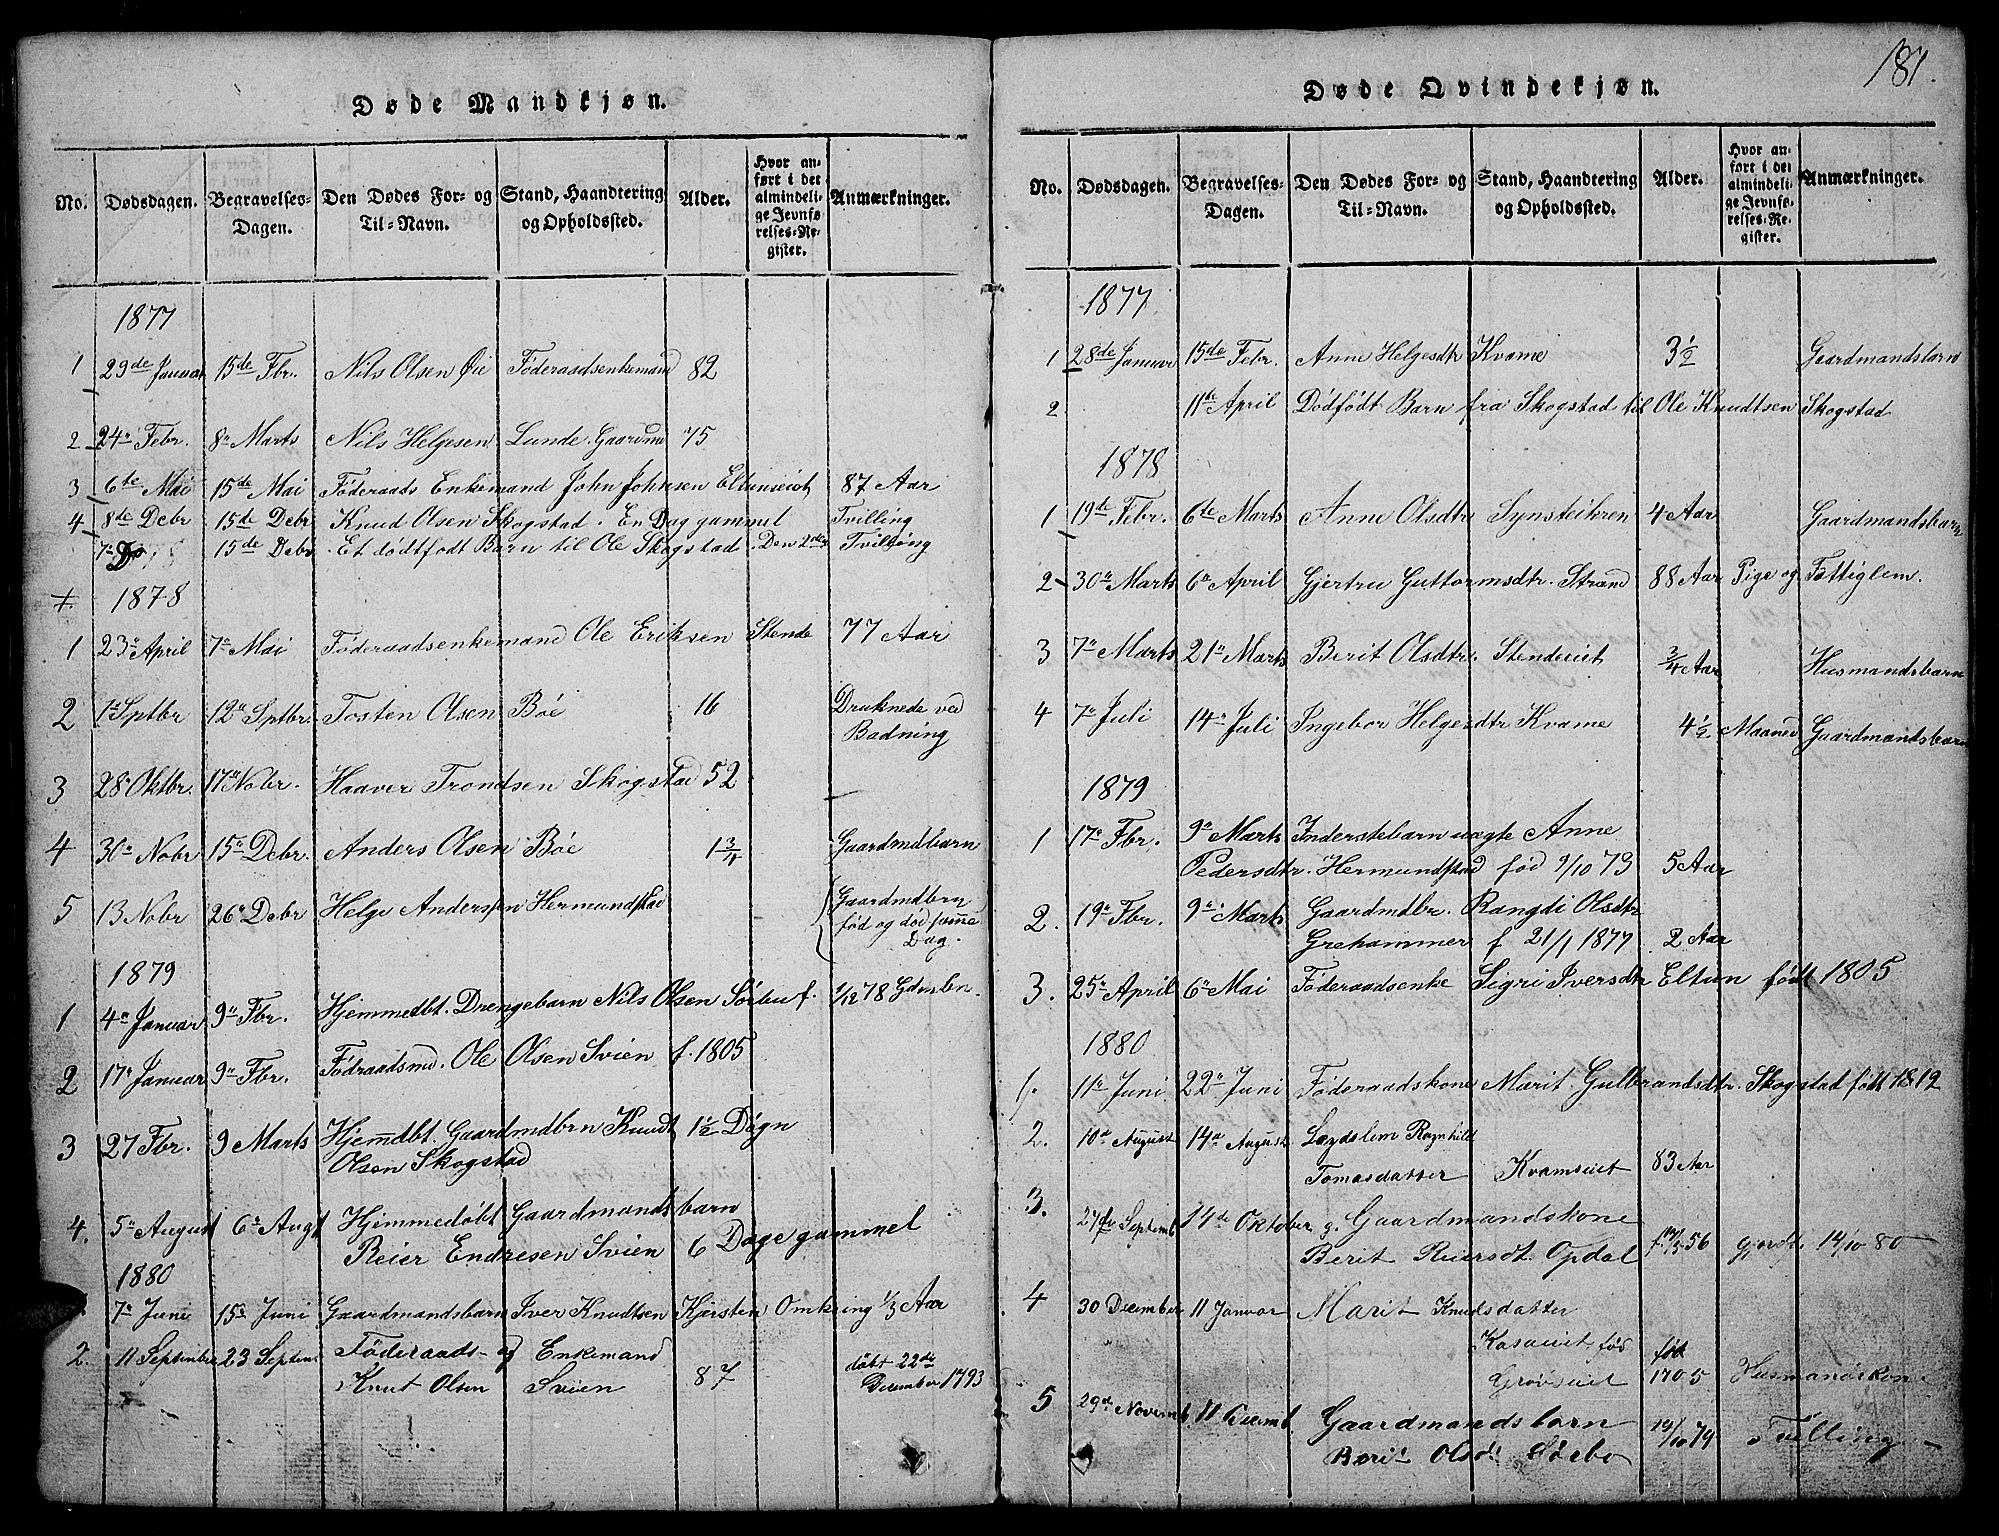 181.
Døde Mandkjøn.
No. Dødsdagen. Begravelses-Dagen. Den Dødes For- og Til-Navn. Stand, Haandtering og Opholdssted. Alder. Hvor anført i det almindelige Jevnførelses-Register. Anmærkninger.
1877
1 29de Januar 15de Fbr. Nils Olsen Øie Føderaadsenkemand 82
2 24n Febr. 8n Marts Nils Helgesen Lunde. Gaardmd 75
3 6te Mai 15de Mai Føderaads Enkemand John Johnsen Eltunseiet 87 Aar
4 8de Debr 15de Debr Knud Olsen Skogstad. En Dag gammel Tvilling
7n 15de Debr. Et dødtfødt Barn til Ole Skogstad. Den 2den Tvilling
1878
1 23n April 7n Mai Føderaadsenkemand Ole Eriksen Stende 77 Aar
2 1n Sptbr 12n Sptbr. Tosten Olsen Bøe 16 Druknede ved
Badning
3 28n Oktbr. 17n Nobr. Haaver Trondsen Skogstad 52
4 30n Nobr 15n Debr. Anders Olsen Bøe 1 3/4 Gaardmdbarn
5 13 Nobr 26n Debr Helge Andersen Hermundstad Gaardmdbrn
fød og død samme
Dag.
1879
1 4n Januar 9n Fbr. Hjemmedbt. Drengebarn Nils Olsen Sørbu f. 1/12 78 Gdmbn.
2 17n Januar 9n Fbr. Fødraadsmd. Ole Olsen Svien f. 1805
3 27 Fbr. 9 Marts Hjemdbt. Gaardmdbrn Knudt 1 1/2 Døgn
Olsen Skogstad
4. 5n August 6n Augt Hjemmedøbt Gaardmands barn
Reier Endresen Svien 6 Dage gammel
1880
7n Juni 15n Juni Gaardmandsbarn Iver Knudtsen Kjørsten Omkring 1/3 Aar
2. 11 September 23 Septem Føderaads- og Enkemand
Knut Olsen Svien 87 døbt 22de
December 1793
Døde Qvindekjøn.
No. Dødsdagen. Begravelses-Dagen. Den Dødes For- og Til-Navn. Stand, Haandtering og Opholdssted. Alder. Hvor anført i det almindelige Jevnførelses-Register. Anmærkninger.
1877
1 28de Januar 15de Febr. Anne Helgesdtr Kvame 3 1/2 Gaardmandsbarn
2 11te April Dødfødt Barn fra Skogstad til Ole Knudtsen Skogstad
1878
1 19de Febr. 6te Marts Anne Olsdtr Synsteikren 4 Aar Gaardmandsbarn
2 30n Marts 6n April Gjertru Guttormsdtr. Strand 88 Aar Pige og Fattiglem.
3 7n Marts 21n Marts Berit Olsdtr. Stendeeiet 3/4 Aar Husmandsbarn
4 7n Juli 14n Juli Ingebor Helgesdtr Kvame 4 1/2 Maaned Gaardmandsbarn
1879
1 17n Fbr. 9n Marts Inderstebarn uægte Anne
Pedersdtr. Hermundstad fød 9/10 73 5 Aar
2. 19n Fbr. 9n Marts Gaardmdbr. Rangdi Olsdtr
Grehammer f 21/1 1877 2 Aar
3. 25n April 6n Mai Føderaadsenke Sigri Iversdtr Eltun født 1805
1880
1. 11n Juni 22n Juni Føderaadskone Marit Gulbrandsdtr. Skogstad født 1812
2. 10n August 14n August Lægdslem Ragnhild
Tomasdatter Kvamseiet 83 Aar
3. 27de Septemb 14de Oktober g. Gaardmandskone
Berit Reiersdt Opdal 56 gjordt 14/10 80
4 30 December 11 Januar Marit Knudsdatter
fød
Grøvseiet 1705 Husmandskone
5 29de Novemb 11 Gaardmandsbarn
Berit Olsd Sørbo 19/10 79 Tvilling